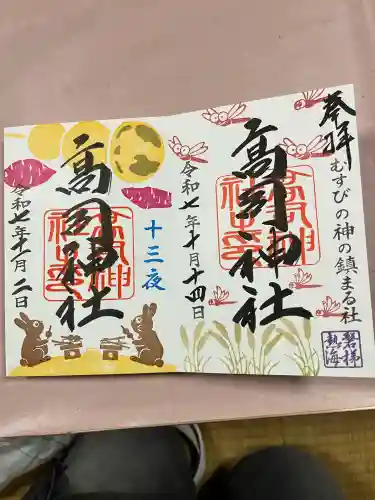 奉拝
むすびの神の鎮まる社
高司神社
令和七年十月十四日
磐梯
熱海
十三夜
高司神社
令和七年十一月二日